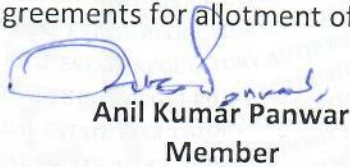 greements for allotment of
Anil Kumar Panwar
Member